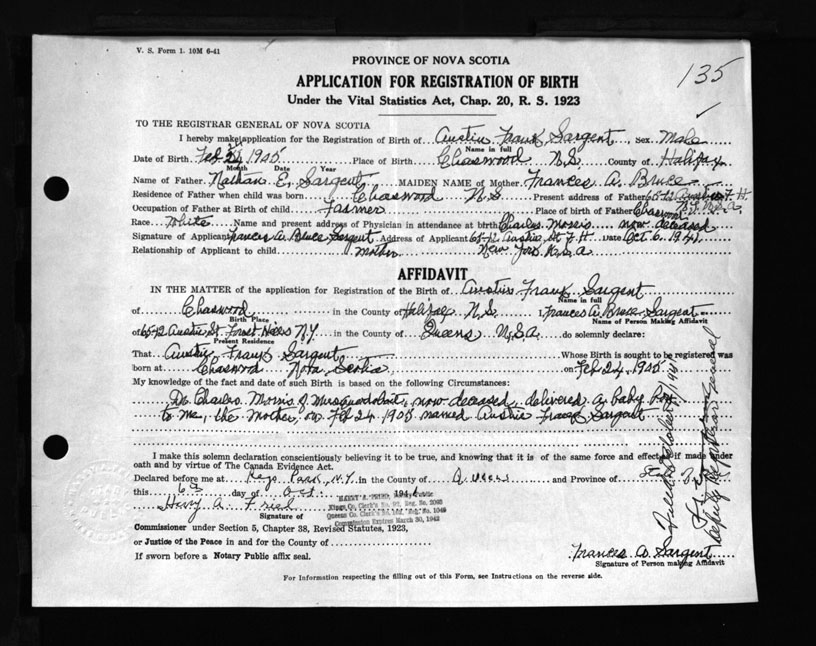 V. S. Form 1. 10M 6-41
PROVINCE OF NOVA SCOTIA
135
APPLICATION FOR REGISTRATION OF BIRTH
Under the Vital Statistics Act, Chap. 20, R. S. 1923
TO THE REGISTRAR GENERAL OF NOVA SCOTIA
I hereby make application for the Registration of Birth of Austin Frank Sargent, Sex Male
Name in full
Date of Birth Feb 24 1905 Place of Birth Chaswood N.S. County of Halifax
Month Date Year
Name of Father Nathan E. Sargent MAIDEN NAME of Mother Frances A. Bruce
Residence of Father when child was born Chaswood N.S. Present address of Father 65-12 Austin St F. H.
Occupation of Father at Birth of child Farmer Place of birth of Father
Race White Name and present address of Physician in attendance at birth Charles Morris now deceased
Signature of Applicant Frances A. Bruce Sargent Address of Applicant 65-12 Austin St F. H. Date Oct 6, 1941
Relationship of Applicant to child mother New York U.S.A
AFFIDAVIT
IN THE MATTER of the application for Registration of the Birth of Austin Frank Sargent
Name in full
of Chaswood in the County of Halifax N.S. I, Frances A. Bruce Sargent
Birth Place Name of Person Making Affidavit
of 65-12 Austin St. Forest Hills N.Y. in the County of Queens U.S.A. do solemnly declare:
Present Residence
That Austin Frank Sargent Whose Birth is sought to be registered was
born at Chaswood Nova Scotia on Feb 24, 1905
My knowledge of the fact and date of such Birth is based on the following Circumstances:
Dr. Charles Morris of Musquodoboit, now deceased, delivered a baby boy
to me, the Mother, on Feb 24 1905 named Austin Frank Sargent
I make this solemn declaration conscientiously believing it to be true, and knowing that it is of the same force and effect if made under
oath and by virtue of The Canada Evidence Act.
Declared before me at Rego Park N.Y. in the County of Queens and Province of
this 6th day of Oct 1941
HARRY A. FRIED, Notary Public
Kings Co. Clerk's No.
Queens Co. Clerk's No. Reg. No. 1049
Commission Expires March 30, 1942
Harry A. Fried
Signature of
Commissioner under Section 5, Chapter 38, Revised Statutes, 1923,
or Justice of the Peace in and for the County of
If sworn before a Notary Public affix seal.
Frances A. Sargent
Signature of Person making Affidavit
For Information respecting the filling out of this Form, see Instructions on the reverse side.
Filed October 1941
Deputy Registrar General